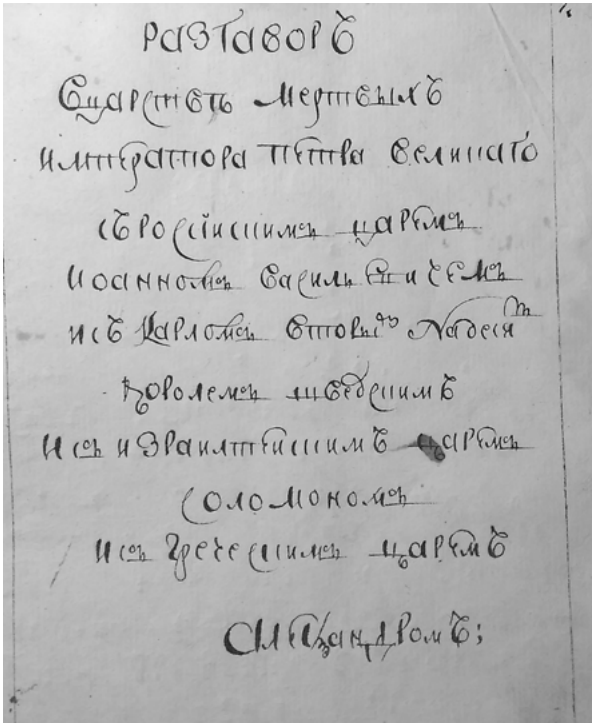 РАЗГАВОРЪ
Въцарстве мертвыхъ
императора петра великаго
съ росиискимъ царемъ
иоанномъ василиевичемъ
и съ карломъ вторымъ надесят
королемъ шведскимъ
и съ израилтейскимъ царемъ
соломономъ
и съ греческимъ царемъ
александромъ;